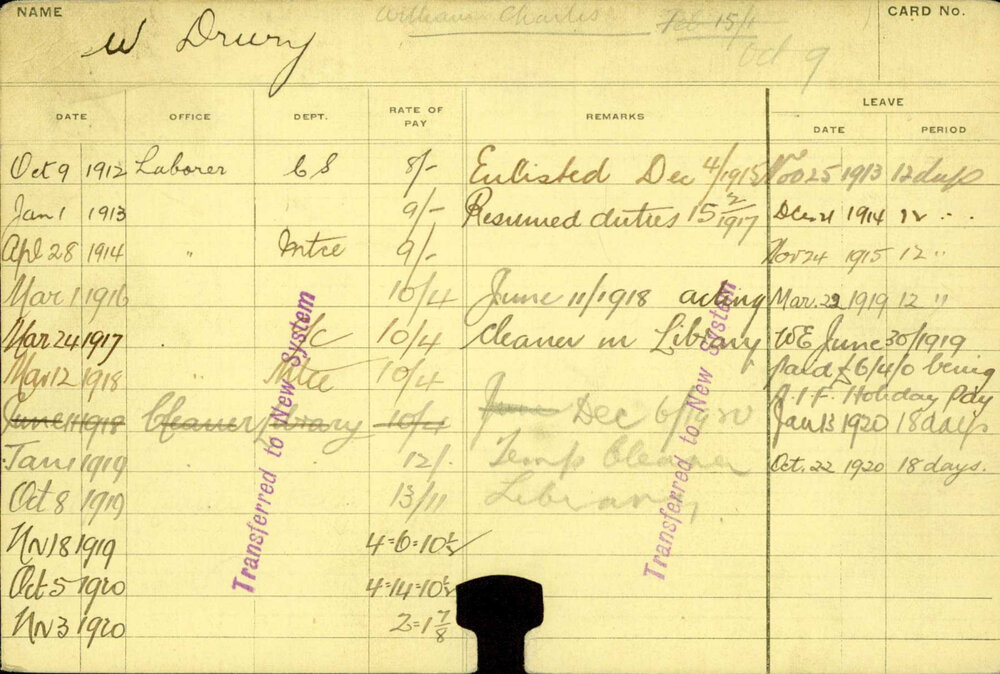 NAME
W Drury
William Charles
Feb 15/1
Oct 9
CARD No.
DATE OFFICE DEPT. RATE OF PAY REMARKS LEAVE
DATE PERIOD
Oct 9 1912 Laborer C S 8/- Enlisted Dec 4/1915 Nov 25 1913 12 days
Jan 1 1913 9/- Resumed duties 15/2/1917 Dec 21 1914 12 " "
Apl 28 1914 " Mtce 9/- Nov 24 1915 12 "
Mar 1 1916 10/4 June 11/1918 acting Mar. 22 1919 12 "
Mar 24 1917 10/4 Cleaner in Library WE June 30/1919
Mar 12 1918 " Mtce 10/4 paid £6/4/0 being
A.I.F. Holiday Pay
June 11 1918 Cleaner Library 10/4 June Dec 6/1920 Jan 13 1920 18 days
Jan 1 1919 12/- Temp Cleaner Oct. 22 1920 18 days.
Oct 8 1919 13/11 Library
Nv 18 1919 4=6=10½
Oct 5 1920 4=14=10½
Nv 3 1920 2=1⅞
Transferred to New System
Transferred to New System